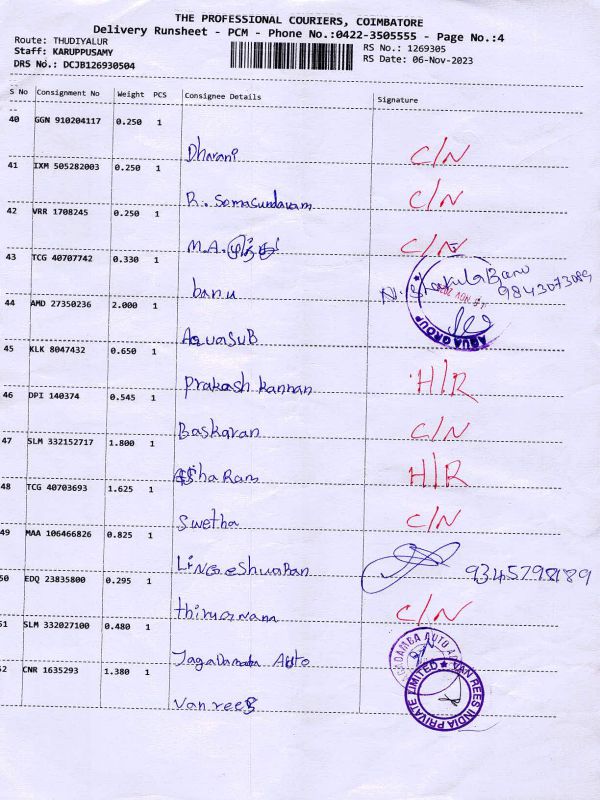 THE PROFESSIONAL COURIERS, COIMBATORE
Delivery Runsheet - PCM - Phone No.:0422-3505555 - Page No.:4
Route: THUDIYALUR
RS No.: 1269305
Staff: KARUPPUSAMY
RS Date: 06-Nov-2023
DRS No.: DCJB126930504
S No Consignment No Weight PCS Consignee Details Signature
40 GGN 910204117 0.250 1
Dharani C/N
41 IXM 505282003 0.250 1
R. Somasundaram C/N
42 VRR 1708245 0.250 1
M.A. C/N
43 TCG 40707742 0.330 1
banu 9843073089
44 AMD 27350236 2.000 1
AquaSUB AQUA GROUP
45 KLK 8047432 0.650 1
Prakash kannan H/R
46 DPI 140374 0.545 1
Baskaran C/N
47 SLM 332152717 1.800 1
Sha Ram H/R
48 TCG 40703693 1.625 1
Swetha C/N
49 MAA 106466826 0.825 1
LiNGeshwaran
50 EDQ 23835800 0.295 1
C/N
51 SLM 332027100 0.480 1
Jagadamba Auto
52 CNR 1635293 1.380 1
Van rees VAN REES INDIA PRIVATE LIMITED